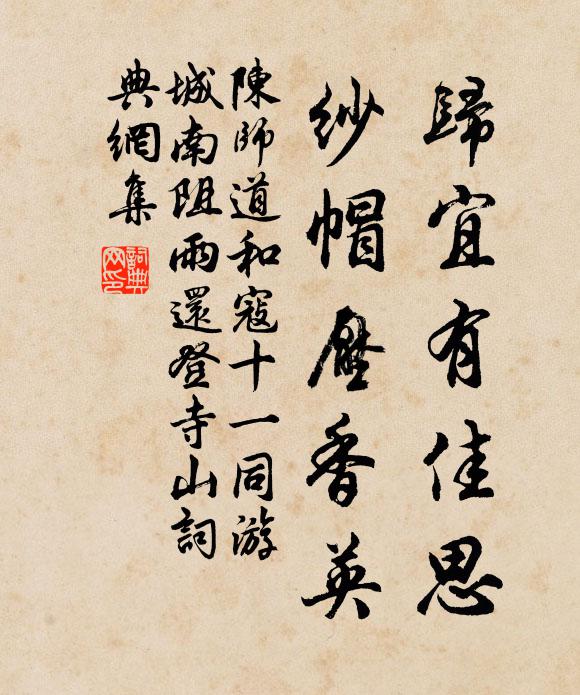 歸宜有佳思
紗帽壓香英
陳師道和寇十一同游
城南阻雨還登寺山詞
典網集
詞典網印